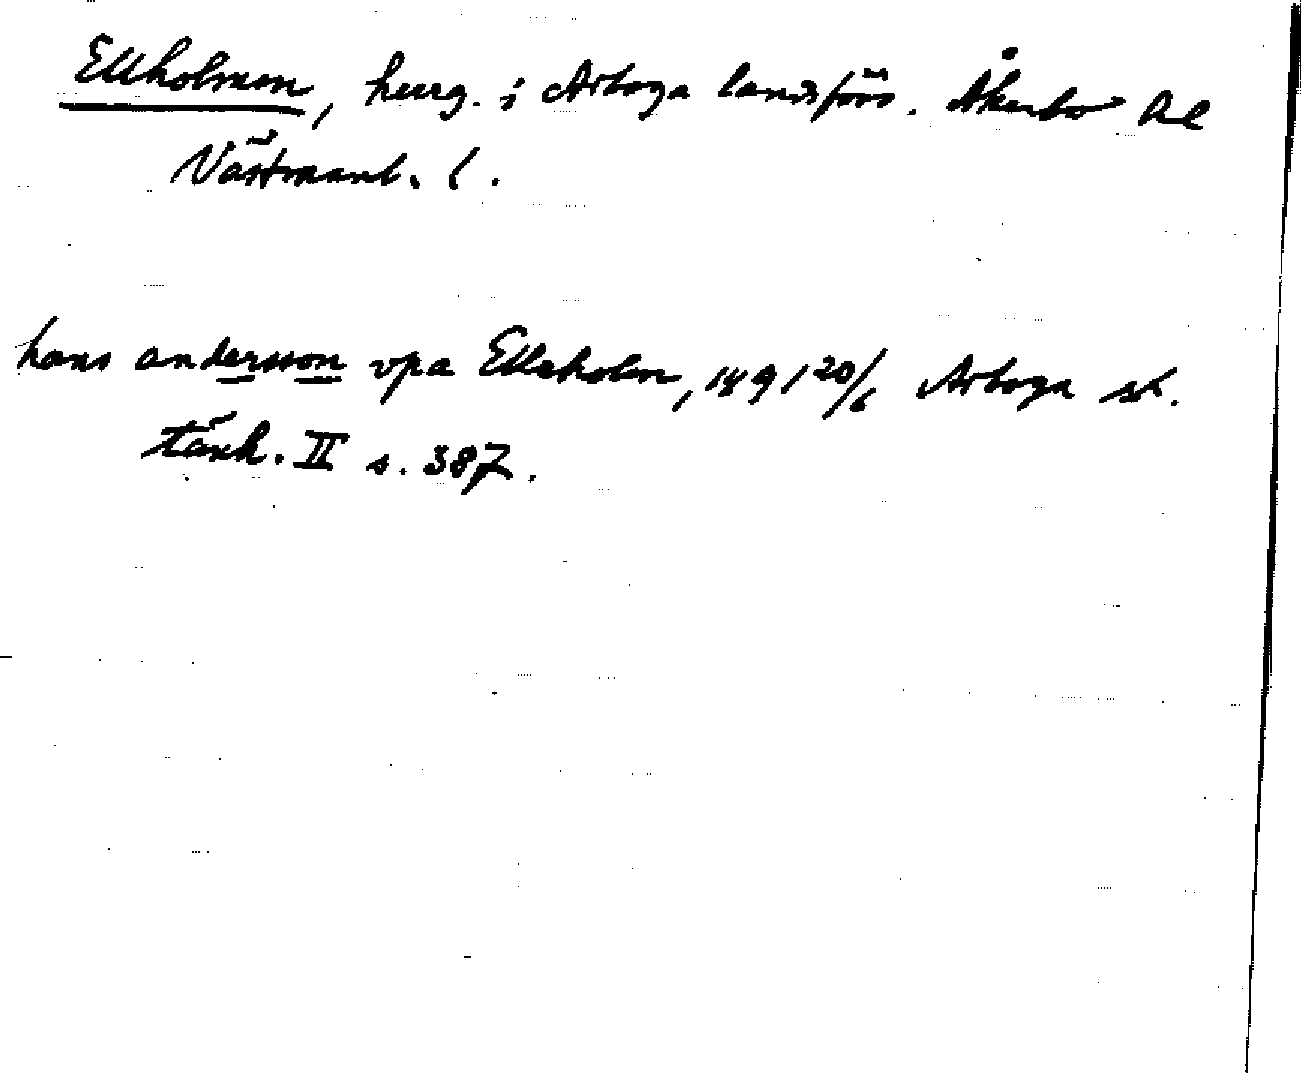 Ellholmen, herrg. i Arboga landsförs. Åkerbo hd
Västmanl. l.
hans andersson vpa Elleholm, 1491 20/6 Arboga st.
tänk. II s. 387.